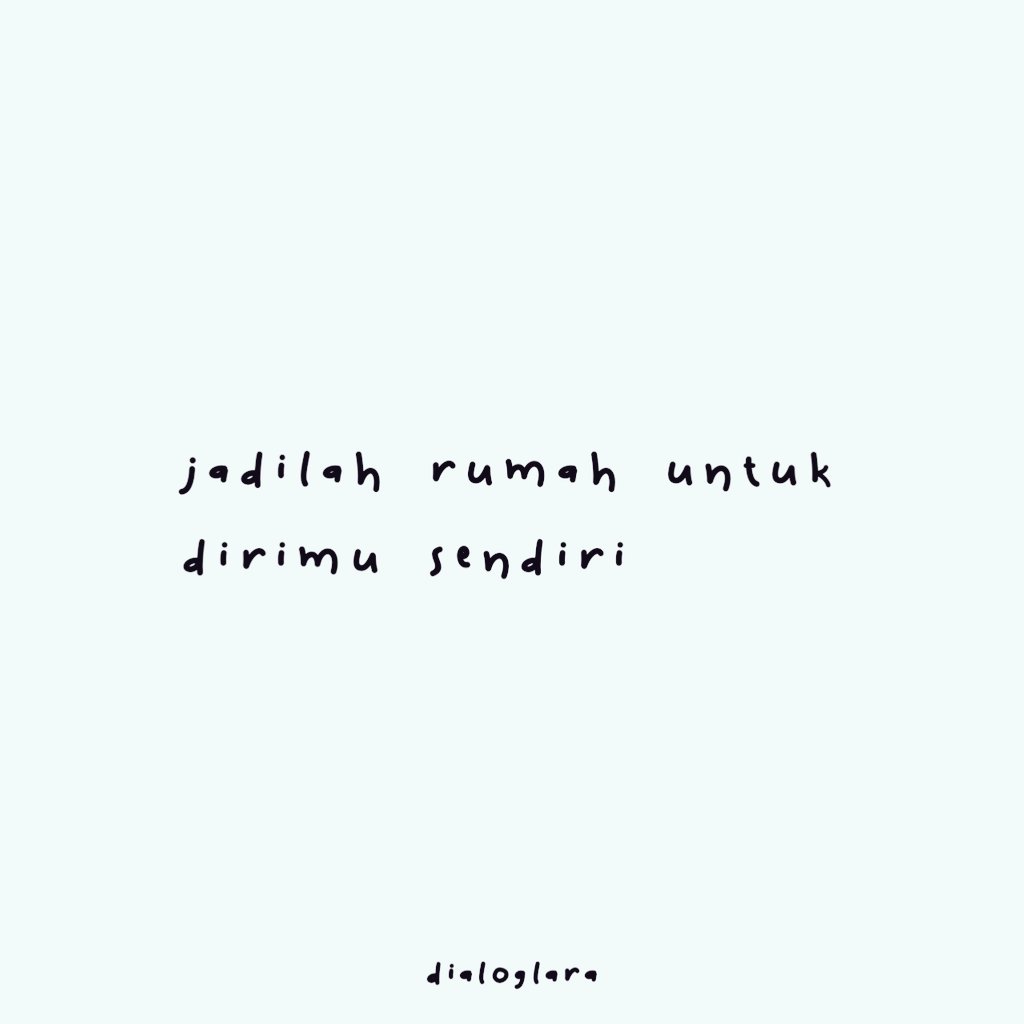 jadilah rumah untuk
dirimu sendiri
dialoglara